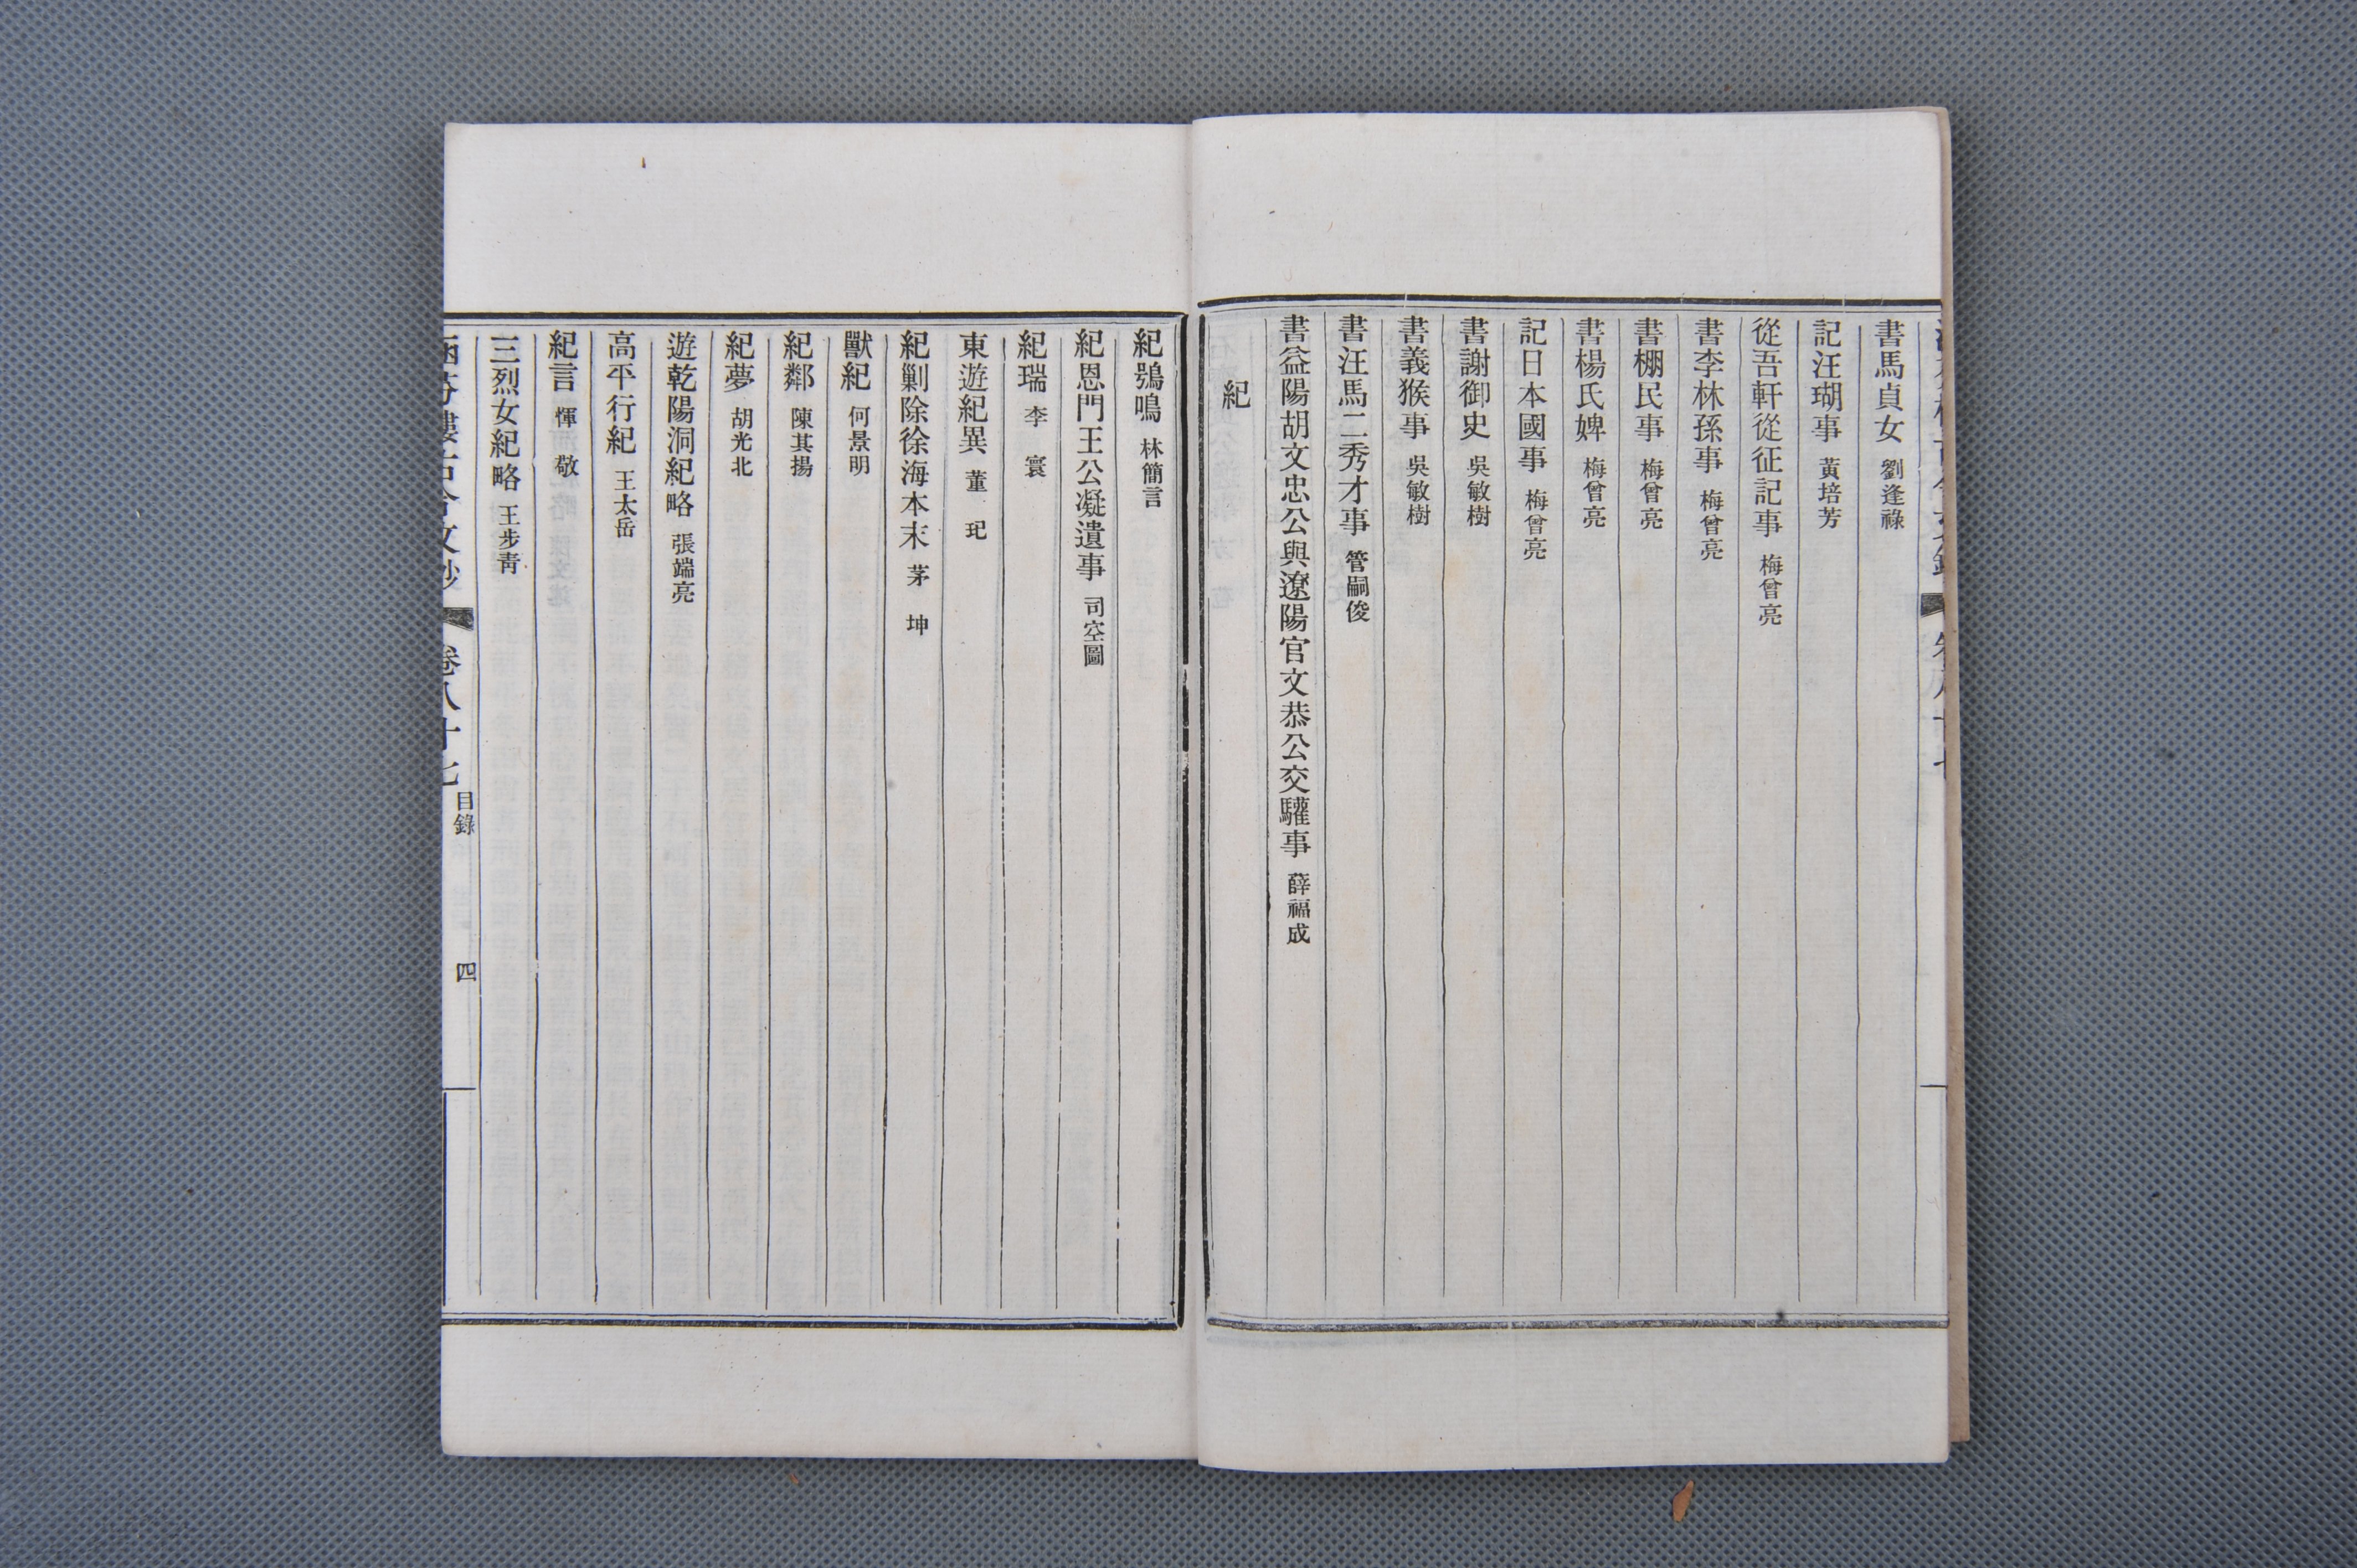 書馬貞女 劉逢祿
記汪瑚事 黃培芳
從吾軒從征記事 梅曾亮
書李林孫事 梅曾亮
書棚民事 梅曾亮
書楊氏婢 梅曾亮
記日本國事 梅曾亮
書謝御史 吳敏樹
書義猴事 吳敏樹
書汪馬二秀才事 管嗣俊
書益陽胡文忠公與遼陽官文恭公交驩事 薛福成
紀
紀鴞鳴 林簡言
紀恩門王公凝遺事 司空圖
紀瑞 李 寰
東遊紀異 董 玘
紀剿除徐海本末 茅 坤
獸紀 何景明
紀鄰 陳其揚
紀夢 胡光北
遊乾陽洞紀略 張端亮
高平行紀 王太岳
紀言 惲 敬
三烈女紀略 王步靑
涵芬樓古今文鈔 卷八十七 目錄 四